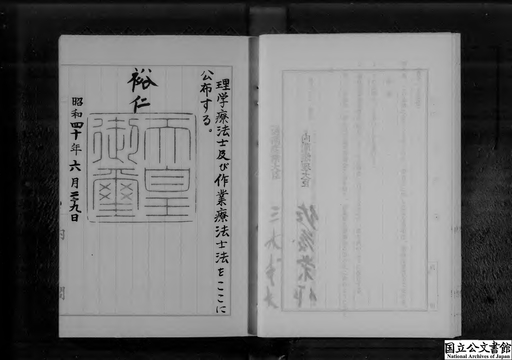 理学療法士及び作業療法士法をここに
公布する。
裕仁
天皇
御璽
昭和四十年六月二十九日
国立公文書館
National Archives of Japan